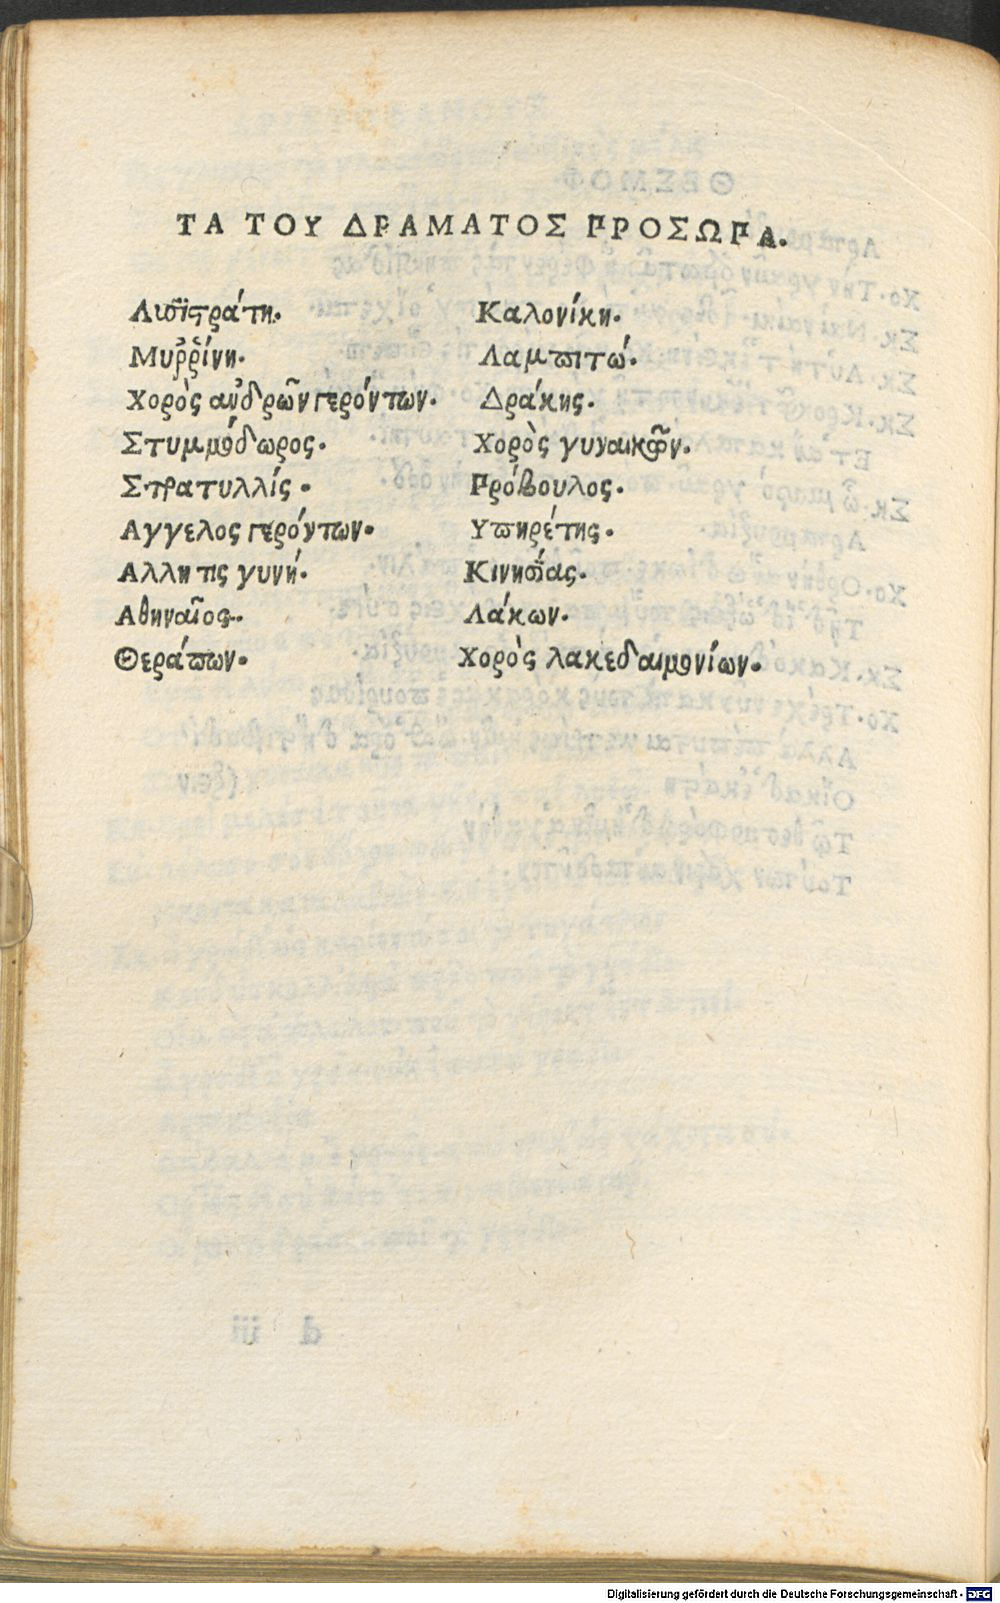 ΤΑ ΤΟΥ ΔΡΑΜΑΤΟΣ ΠΡΟΣΩΠΑ.
Λυσιστράτη. Καλονίκη.
Μυῤῥίνη. Λαμπιτώ.
Χορὸς ανδρῶν γερόντων. Δράκης.
Στυμμόδωρος. Χορὸς γυναικῶν.
Στρατυλλίς. Πρόβουλος.
Αγγελος γερόντων. Υπηρέτης.
Αλλη τις γυνή. Κινησίας.
Αθηναῖος. Λάκων.
Θεράπων. Χορὸς λακεδαιμονίων.
Digitalisierung gefördert durch die Deutsche Forschungsgemeinschaft - DFG